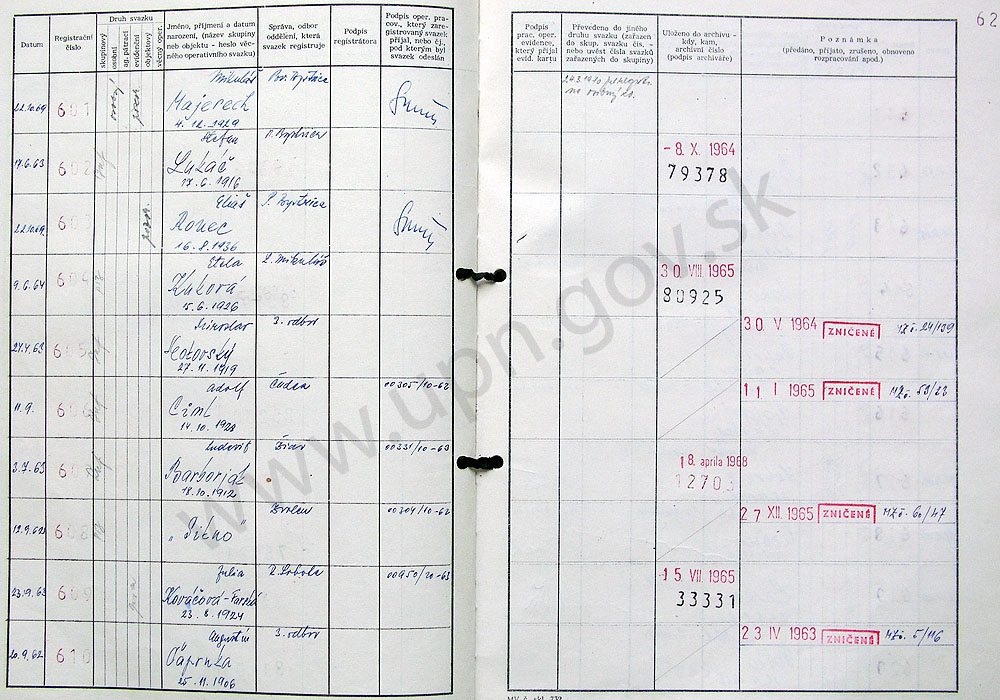 Datum
Registrační číslo
Druh svazku
skupinový
osobní
ag. pátrací
evidenční
objektový
věcný oper.
Jméno, příjmení a datum narození, (název skupiny neb objektu - heslo věcného operativního svazku)
Správa, odbor oddělení, která svazek registruje
Podpis registrátora
Podpis oper. pracov., který zaregistrovaný svazek přijal, nebo čj., pod kterým byl svazek odeslán
22.10.69 601 Mikuláš Majerech 4. 12. 1929
17.6.63 602 Štefan Lukáč 17. 6. 1916
22.10.69 603 Eliáš 16. 8. 1936
9.6.64 604 Kuková 15. 6. 1926 L. Mikuláš
605 Miroslav 27. 11. 1919 3. odbor
11.9. 606 Adolf 14. 10. 1928 Čadca 00305/10-62
3.7.63 Ľudovít Barborják 18. 10. 1912 00331/10-63
12.9.62 608 Zvolen 00304/10-62
23.9.63 609 Júlia Kováčová- 23. 8. 1924 R. Sobota 00950/20-63
20.9.62 610 Augustín 25. 11. 1906 3. odbor
62
Podpis prac. oper. evidence, který přijal evid. kartu
Převedena do jiného druhu svazku (zařazen do skup. svazku čís. - nebo uvést čísla svazků zařazených do skupiny)
Uloženo do archivu - kdy, kam, archivní číslo (podpis archiváře)
Poznámka
(předáno, přijato, zrušeno, obnoveno rozpracování apod.)
- 8. X. 1964
79378
30. VIII. 1965
80925
30 V 1964 ZNIČENÉ 24/139
11 I 1965 ZNIČENÉ MZ č. 53/23
18. aprila 1968
27 XII. 1965 ZNIČENÉ MZ č. 60/47
15. VII. 1965
33331
23 IV 1963 ZNIČENÉ MZ č. 5/116
www.upn.gov.sk